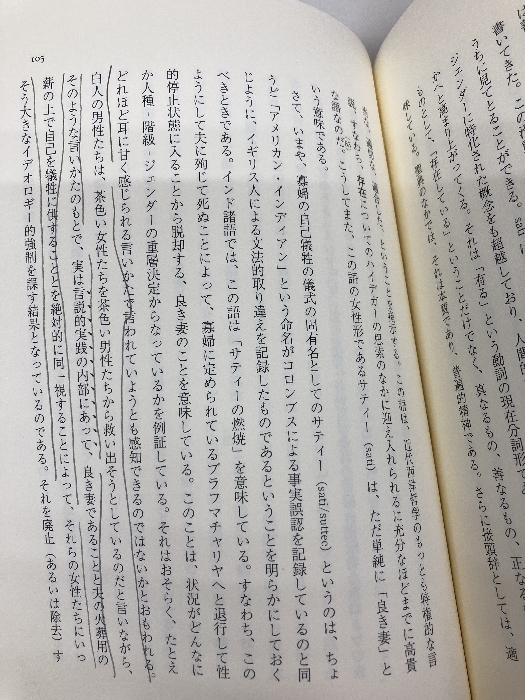 書いてきた。この
うちに見てとることができる。
ジェンダーに時化された概念をも超越しており、人間的
かへと連れ上がってくる。それは「有る」という動詞の現在分詞形で
ものとして、「存在している」ということだけでなく、真なるもの、善なるもの、正
味している。聖典のなかでは、それは本質であり、普遍的精神である。さらに接頭辞としては、適
を示する。この語は、近代西洋哲学のもっとも特権的な言
説、すなわち、存在についてのハイデガーの思索のなかに迎え入れられるに充分なほどまでに高貴
な語なのだ。こうしてまた、この語の女性形であるサティー(sati)は、ただ単純に「良き妻」と
いう意味である。
さて、いまや、寡婦の自己犠牲の儀式の固有名としてのサティー(sati/suttee)というのは、ちょ
うど「アメリカン・インディアン」という命名がコロンブスによる事実誤認を記録しているのと同
じように、イギリス人による文法的取り違えを記録したものであるということを明らかにしておく
べきときである。インド諸語では、この語は「サティーの燃焼」を意味している。すなわち、この
ようにして夫に殉じて死ぬことによって、寡婦に定められているブラフマチャリヤへと退行して性
的停止状態に入ることから脱却する、良き妻のことを意味している。このことは、状況がどんなに
か人種-階級-ジェンダーの重層決定からなっているかを例証している。それはおそらく、たとえ
どれほど耳に甘く感じられる言いかたで言われていようとも感知できるのではないかとおもわれる。
白人の男性たちは、茶色い女性たちを茶色い男性たちから救い出そうとしているのだと言いながら、
そのような言いかたのもとで、実は言説的実践の内部にあって、良き妻であることと夫の火葬用の
薪の上で自己を犠牲に供することとを絶対的に同一視することによって、それらの女性たちにいっ
そう大きなイデオロギー的強制を課す結果となっているのである。それを廃止(あるいは除去)す
105